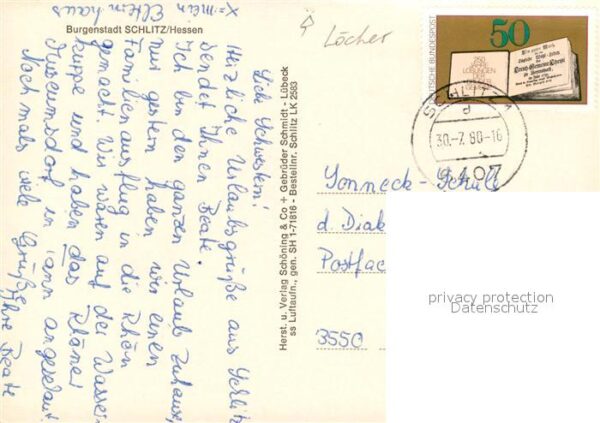 Burgenstadt SCHLITZ/Hessen
x = mein
Elternhaus
Löcher
Liebe Schwestern!
Herzliche Urlaubsgrüße aus Schlitz
sendet Ihnen Beate.
Ich bin den ganzen Urlaub zuhause,
nur gestern haben wir einen
Familienausflug in die Rhön
gemacht. Wir waren auf der Wasser-
kuppe und haben das Rhöner
Museumsdorf in Tann angeschaut.
Nochmals viele Grüße
Ihre Beate
Herst. u. Verlag Schöning & Co + Gebrüder Schmidt - Lübeck
ss Luftaufn., gen. SH 1-71816 - Bestellnr. Schlitz LK 2583
DEUTSCHE BUNDESPOST
50
LOSUNGEN
SCHLITZ 1
d
30.-7.80-16
6407
Sonneck-Schule
d. Diak
Postfac
3550
privacy protection
Datenschutz